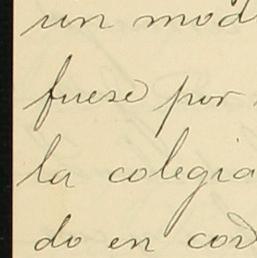 un mod
fuese por
la colegia
do en cor